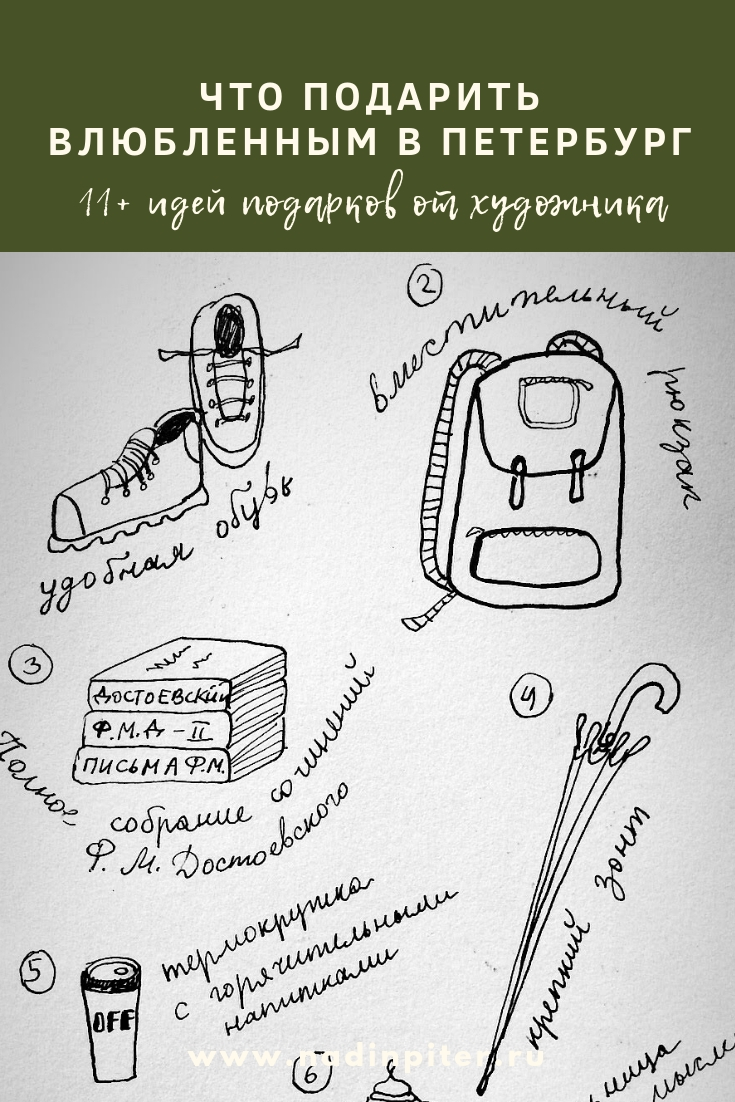 ЧТО ПОДАРИТЬ
ВЛЮБЛЕННЫМ В ПЕТЕРБУРГ
11+ идей подарков от художника
удобная обувь
2
вместительный рюкзак
3
ДОСТОЕВСКИЙ
Ф.М.Д – II
ПИСЬМА Ф.М.
Полное
собрание сочинений
Ф. М. Достоевского
4
крепкий зонт
5
OFF
термокружка
с горячительными
напитками
www.nadinpiter.ru
6